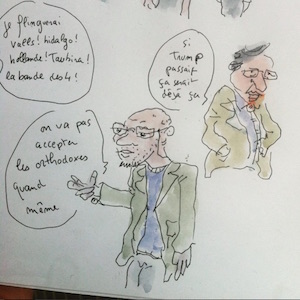 je flinguerai
valls! hidalgo!
hollande! Taubira!
la bande des 4!
si
Trump
passait
ça serait
déjà ça
on va pas
accepter
les orthodoxes
quand
même